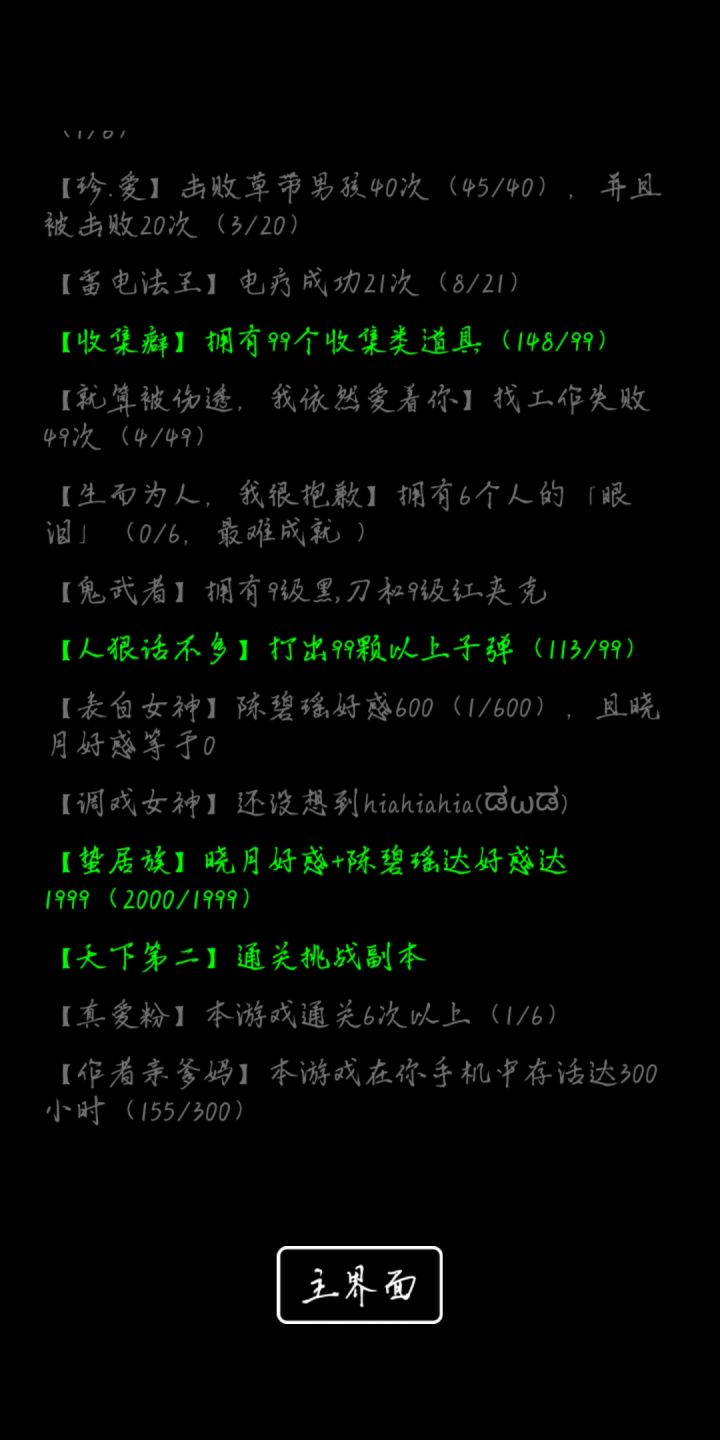 （1/6）
【珍.爱】击败草带男孩40次（45/40），并且
被击败20次（3/20）
【雷电法王】电疗成功21次（8/21）
【收集癖】拥有99个收集类道具（148/99）
【就算被伤透，我依然爱着你】找工作失败
49次（4/49）
【生而为人，我很抱歉】拥有6个人的「眼
泪」（0/6，最难成就 ）
【鬼武者】拥有9级黑刀和9级红夹克
【人狠话不多】打出99颗以上子弹（113/99）
【表白女神】陈碧瑶好感600（1/600），且晓
月好感等于0
【调戏女神】还没想到hiahiahia(ಡωಡ)
【蛰居族】晓月好感+陈碧瑶达好感达
1999（2000/1999）
【天下第二】通关挑战副本
【真爱粉】本游戏通关6次以上（1/6）
【作者亲爹妈】本游戏在你手机中存活达300
小时（155/300）
主界面